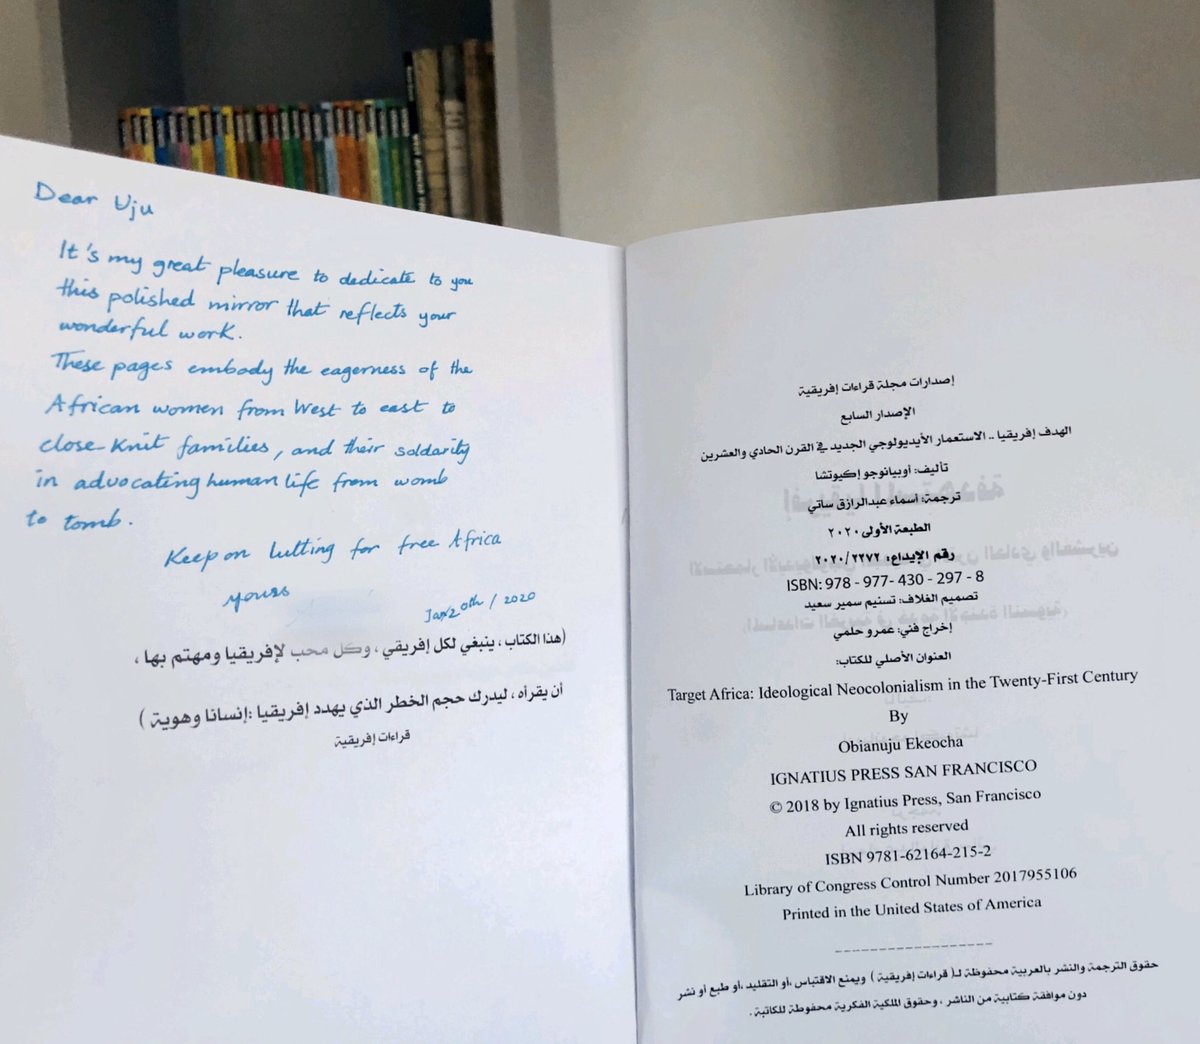 Dear Uju
It's my great pleasure to dedicate to you
this polished mirror that reflects your
wonderful work.
These pages embody the eagerness of the
African women from West to east to
close-knit families, and their soldarity
in advocating human life from womb
to tomb.
Keep on lutting for free Africa
yours
Jan 20th / 2020
(هذا الكتاب ، ينبغي لكل إفريقي ، وكل محب لإفريقيا ومهتم بها ،
أن يقرأه ، ليدرك حجم الخطر الذي يهدد إفريقيا :إنسانا وهوية )
قراءات إفريقية
إصدارات مجلة قراءات إفريقية
الإصدار السابع
الهدف إفريقيا .. الاستعمار الأيديولوجي الجديد في القرن الحادي والعشرين
تأليف: أوبيانوجو إكيوتشا
ترجمة: أسماء عبدالرازق ساتي
الطبعة الأولى ٢٠٢٠
رقم الإيداع: ٢٠٢٠/٢٢٧٢
ISBN: 978 - 977- 430 - 297 - 8
تصميم الغلاف: تسنيم سمير سعيد
إخراج فني: عمرو حلمي
العنوان الأصلي للكتاب:
Target Africa: Ideological Neocolonialism in the Twenty-First Century
By
Obianuju Ekeocha
IGNATIUS PRESS SAN FRANCISCO
© 2018 by Ignatius Press, San Francisco
All rights reserved
ISBN 9781-62164-215-2
Library of Congress Control Number 2017955106
Printed in the United States of America
حقوق الترجمة والنشر بالعربية محفوظة لـ( قراءات إفريقية ) ويمنع الاقتباس ،أو التقليد ،أو طبع أو نشر
دون موافقة كتابية من الناشر ، وحقوق الملكية الفكرية محفوظة للكاتبة .